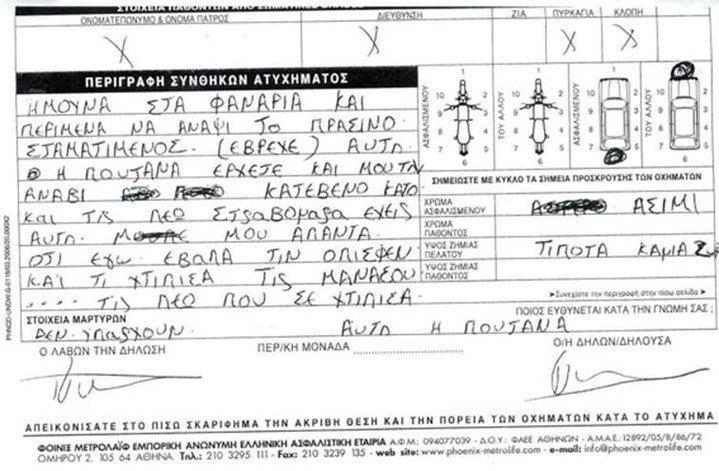 ΣΤΟΙΧΕΙΑ ΠΑΘΟΝΤΩΝ ΑΠΟ ΣΩΜΑΤΙΚΕΣ ΒΛΑΒΕΣ
ΟΝΟΜΑΤΕΠΩΝΥΜΟ & ΟΝΟΜΑ ΠΑΤΡΟΣ ΔΙΕΥΘΥΝΣΗ ΖΙΑ ΠΥΡΚΑΓΙΑ ΚΛΟΠΗ
X X X X
ΠΕΡΙΓΡΑΦΗ ΣΥΝΘΗΚΩΝ ΑΤΥΧΗΜΑΤΟΣ
ΗΜΟΥΝΑ ΣΤΑ ΦΑΝΑΡΙΑ ΚΑΙ
ΠΕΡΙΜΕΝΑ ΝΑ ΑΝΑΨΙ ΤΟ ΠΡΑΣΙΝΟ
ΣΤΑΜΑΤΙΜΕΝΟΣ. (ΕΒΡΕΧΕ) ΑΥΤΗ
Η ΠΟΥΤΑΝΑ ΕΡΧΕΤΕ ΚΑΙ ΜΟΥΤΗ
ΑΝΑΒΙ ΚΑΤΕΒΕΝΟ ΚΑΤΟ
ΚΑΙ ΤΙΣ ΛΕΩ ΣΤραΒΟΜαρα ΕΧΕΙΣ
ΑΥΤΗ ΜΟΥ ΑΠΑΝΤΑ.
ΟΤΙ ΕΓΩ ΕΒΑΛΑ ΤΙΝ ΟΠΙΣΦΕΝ
ΚΑΙ ΤΙ ΧΤΙΠΙΣΑ ΤΙΣ ΜΑΝΑΣΟΥ
.... ΤΙΣ ΛΕΩ ΠΟΥ ΣΕ ΧΤΙΠΙΣΑ.
ΑΣΦΑΛΙΣΜΕΝΟΥ
1 10 2 9 3 8 4 7 5 6
ΤΟΥ ΑΛΛΟΥ
1 10 2 9 3 8 4 7 5 6
ΑΣΦΑΛΙΣΜΕΝΟΥ
1 10 2 9 3 8 4 7 5
ΤΟΥ ΑΛΛΟΥ
10 2 9 3 8 4 7 5 6
ΣΗΜΕΙΩΣΤΕ ΜΕ ΚΥΚΛΟ ΤΑ ΣΗΜΕΙΑ ΠΡΟΣΚΡΟΥΣΗΣ ΤΩΝ ΟΧΗΜΑΤΩΝ
ΧΡΩΜΑ ΑΣΦΑΛΙΣΜΕΝΟΥ ΑΣΙΜΙ
ΧΡΩΜΑ ΠΑΘΟΝΤΟΣ
ΥΨΟΣ ΖΗΜΙΑΣ ΠΕΛΑΤΟΥ ΤΙΠΟΤΑ ΚΑΜΙΑ
ΥΨΟΣ ΖΗΜΙΑΣ ΠΑΘΟΝΤΟΣ
➤Συνεχίστε την περιγραφή στην πίσω σελίδα➤
ΣΤΟΙΧΕΙΑ ΜΑΡΤΥΡΩΝ ΠΟΙΟΣ ΕΥΘΥΝΕΤΑΙ ΚΑΤΑ ΤΗΝ ΓΝΩΜΗ ΣΑΣ ;
ΔΕΝ ΥΠΑΡΧΟΥΝ. ΑΥΤΗ Η ΠΟΥΤΑΝΑ
Ο ΛΑΒΩΝ ΤΗΝ ΔΗΛΩΣΗ ΠΕΡ/ΚΗ ΜΟΝΑΔΑ Ο/Η ΔΗΛΩΝ/ΔΗΛΟΥΣΑ
ΑΠΕΙΚΟΝΙΣΑΤΕ ΣΤΟ ΠΙΣΩ ΣΚΑΡΙΦΗΜΑ ΤΗΝ ΑΚΡΙΒΗ ΘΕΣΗ ΚΑΙ ΤΗΝ ΠΟΡΕΙΑ ΤΩΝ ΟΧΗΜΑΤΩΝ ΚΑΤΑ ΤΟ ΑΤΥΧΗΜΑ
ΦΟΙΝΙΞ ΜΕΤΡΟΛΑΪΦ ΕΜΠΟΡΙΚΗ ΑΝΩΝΥΜΗ ΕΛΛΗΝΙΚΗ ΑΣΦΑΛΙΣΤΙΚΗ ΕΤΑΙΡΙΑ Α.Φ.Μ.: 094077039 - Δ.Ο.Υ.: ΦΑΕΕ ΑΘΗΝΩΝ - Α.Μ.Α.Ε.: 12892/05/Β/86/72
ΟΜΗΡΟΥ 2, 105 64 ΑΘΗΝΑ Τηλ.: 210 3295 111 - Fax: 210 3239 135 - web site: www.phoenix-metrolife.com - e-mail: info@phoenix-metrolife.com